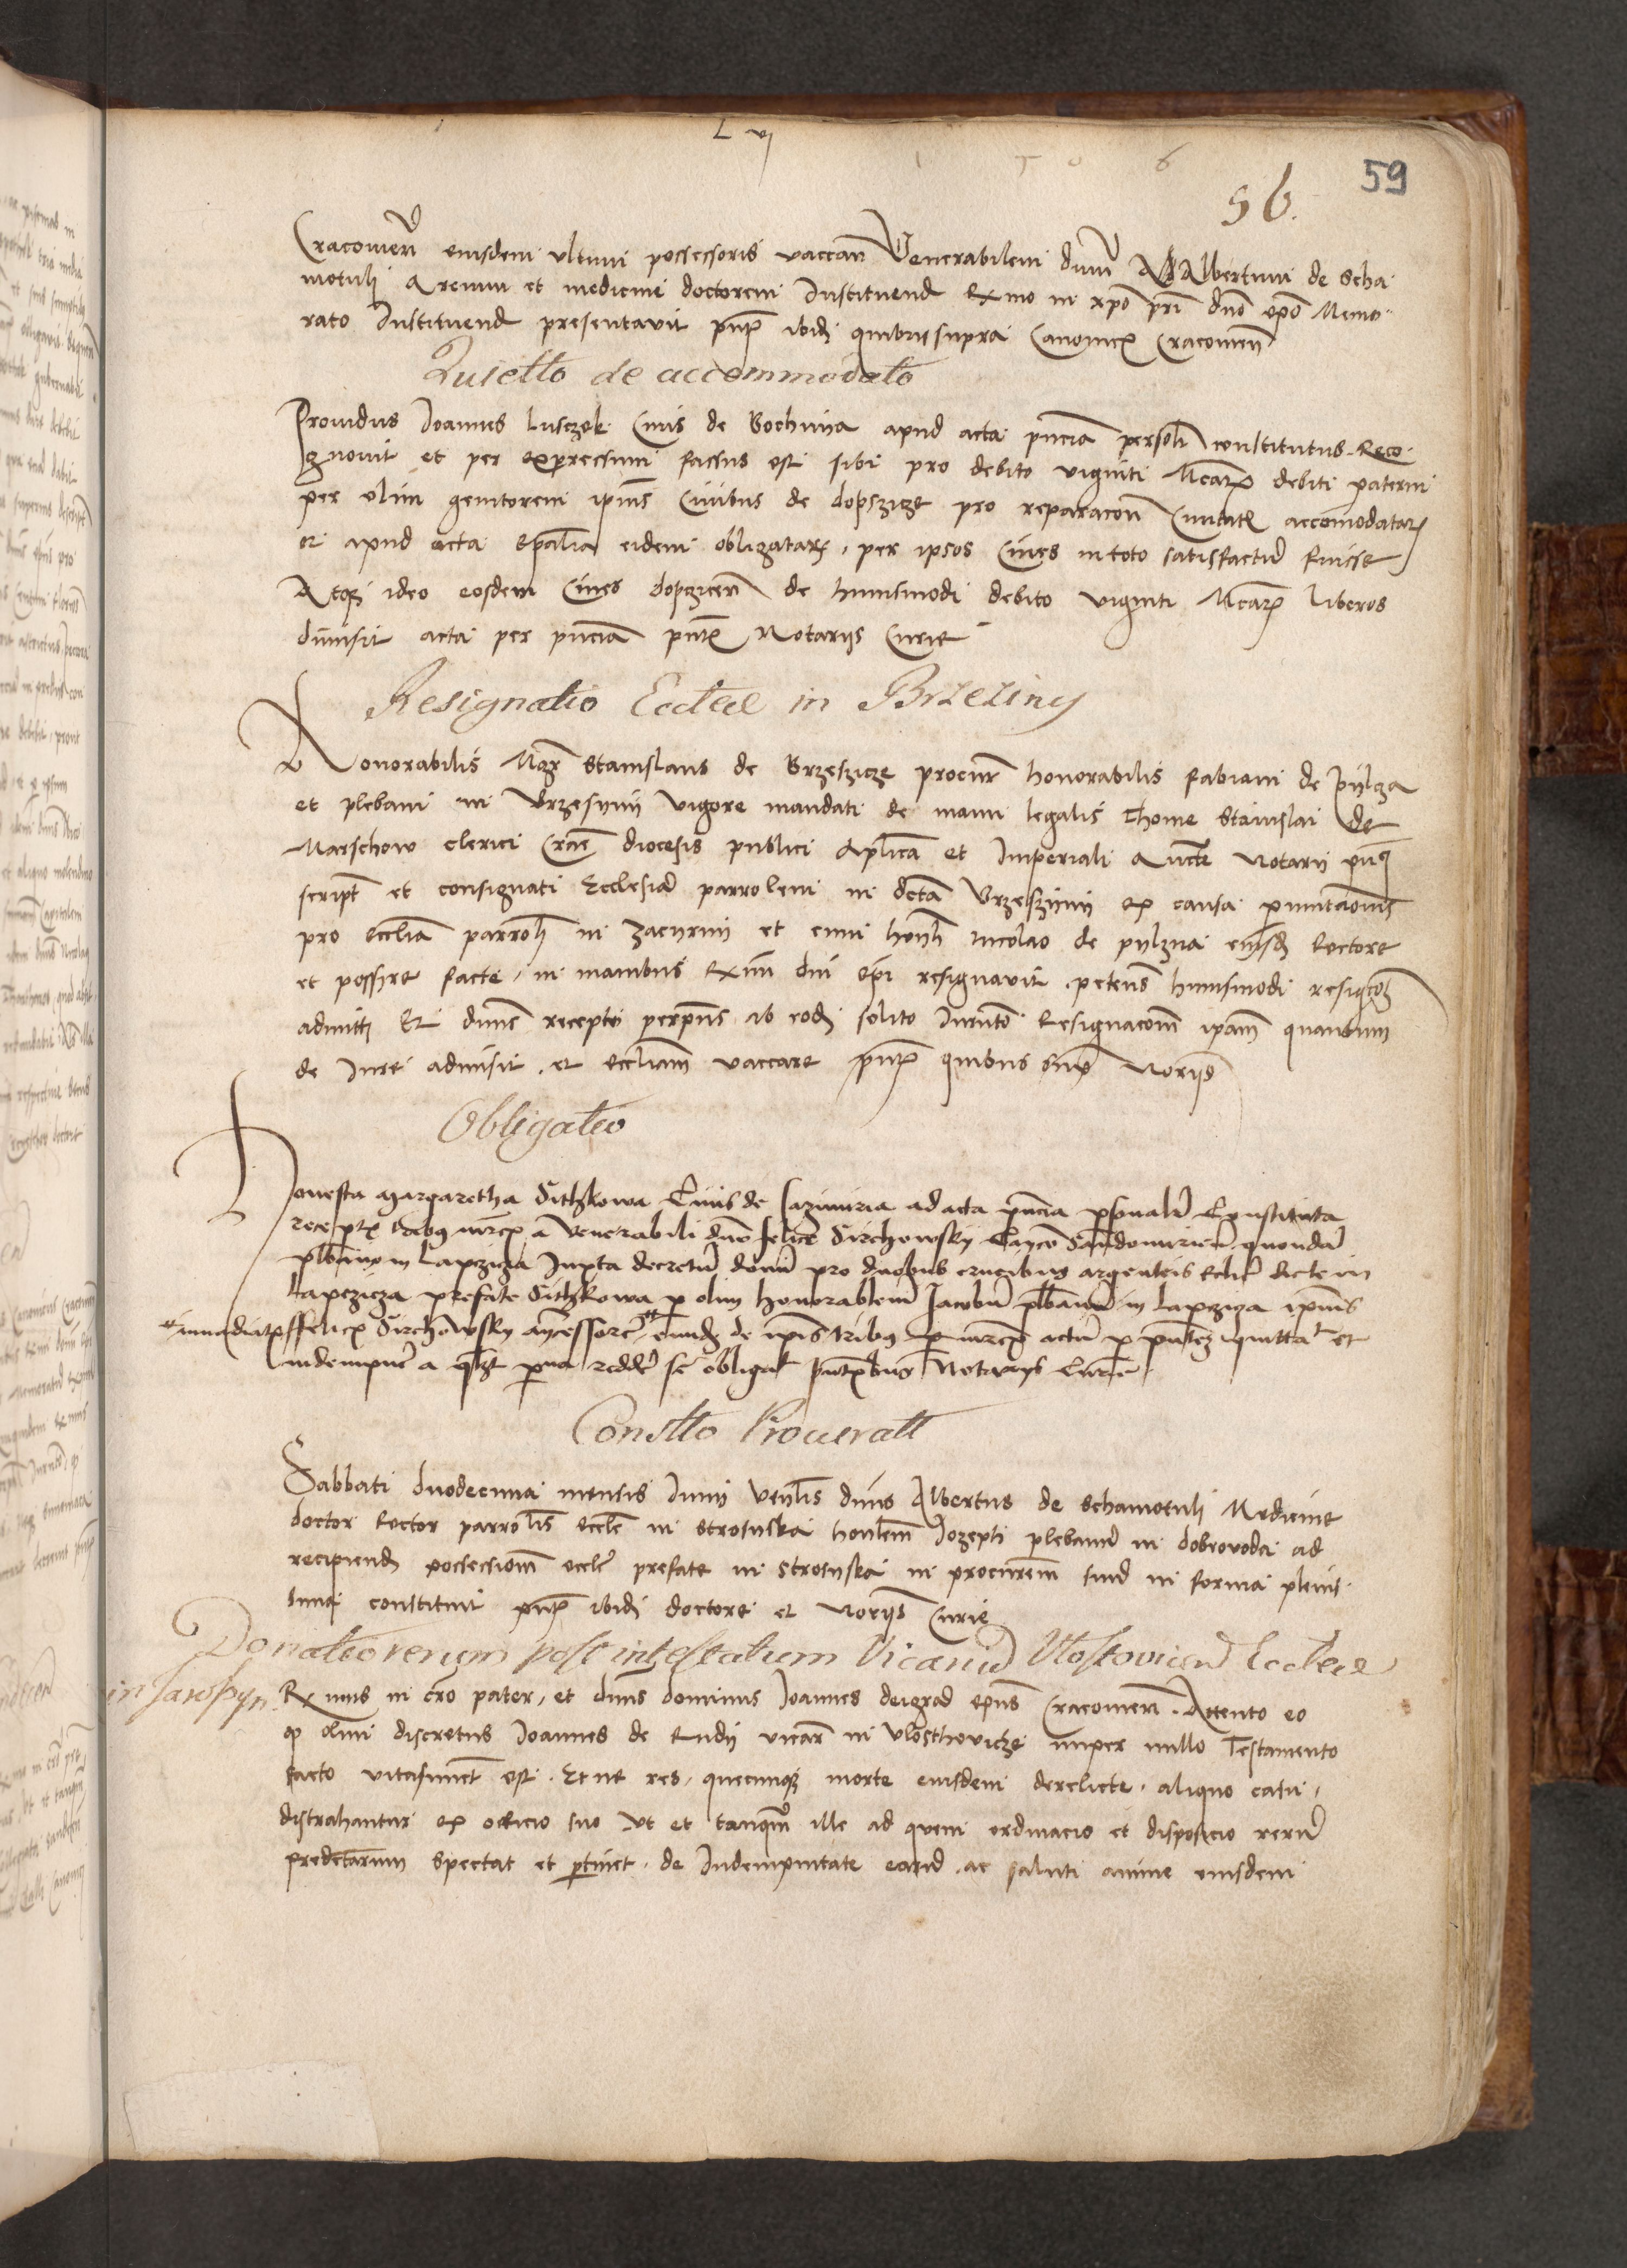 L vj
56.
59
Cracouien eiusdem vltimi possessoris vaccan Venerabilem dnum Albertum de Scha
motuli Arcium et medicine doctorem Instituend Rxmo in xpo pri dno epo Memo
rato Instituend presentavit pntx ibid quibus supra Canonicx Cracouien
Quietto de accommodato
Providus Joannes Lusczek Civis de Bochnya apud acta pncia personl constitutus Reco
gnovit et per expressum fassus est sibi pro debito viginti Mcarx debiti paterni
per olim genitorem ipius Civibus de dopszicze pro reparacon Civitatx accomodatarx
et apud acta epalia eidem obligatarx per ipsos Cives in toto satisfactu fuisse
Atqz ideo eosdem Cives dopczicen de huiusmodi debito viginti Mcarx liberos
dimisit acta per pncia pntx Notariis Curie
Resignatio Ecclae in Brzeziny
Honorabilis Mgr Stanislaus de Brzeszicze procur honorabilis fabiani de pylcza
et plebani in Brzesyny vigore mandati de manu legalis Thome Stanislai de
Marschow clerici Crac diocesis publici Aplica et Imperiali Aucte Notarii
script et consignati Ecclesia parrolem in dcta Brzeszyny ex causa pmutacionis
pro ecclia parrol in Zaczyrny et cum honl Nicolao de pylzna eiusd Rectore
et possre facte in manibus Rxmi dni epi resignavit petens huiusmodi resigcoz
admitti Et dnus recepto perpus ab eod solito Iurmto Resignacom ipam quantum
de Iure admisit et eccliam vaccare pntx quibus sup Noriis
Obligatio
Honesta Margaretha Sithkowa Civis de Cazimiria ad acta pncia psonalr Constituta
receptx tribus mrcx a Venerabili dno felice Sirchowsky Canco Sandomirien quonda
plbano in Lapczicza Iuxta decretu domi pro duobus crucibus argenteis eccle dicte in
Lapczicza prefate Sithkowa p olim honorablem Jacobu plbanu in Lapczicza ipius
immediatx ffelicx Sirchowsky ancessore eund de ipis tribus mrcx actu p pntez quittat et
indempne a qlzt pna redde se obligat pntibus Notariis Curie
Constto Procuratt
Sabbati duodecima mensis Junii venlis dnus Albertus de Schamotuli Medicine
doctor Rector parrolis eccle in Strosyska honlem Jozepti plebanu in dobrovoda ad
recipiend possessiom eccle prefate in Strosyska in procurem suu in forma plenis
sima constituit pntx ibid doctore et Noriis Curie
Donatio rerum post intestatum Vicariu Vlostovicen Ecclae
in Jarosyn
Rxmus in cro pater et dnus dominus Joannes dei gra epus Cracouien Attento eo
q olim discretus Joannes de Rudy vicar in Vlosthovicze nuper nullo Testamento
facto vitafunct est Et ne res quecunqz morte eiusdem derelicte aliquo casu
distrahantur ex officio suo vt et tanqm ille ad quem ordinacio et disposicio reru
predctarum spectat et ptinet de Indempnitate earud ac saluti anime eiusdem